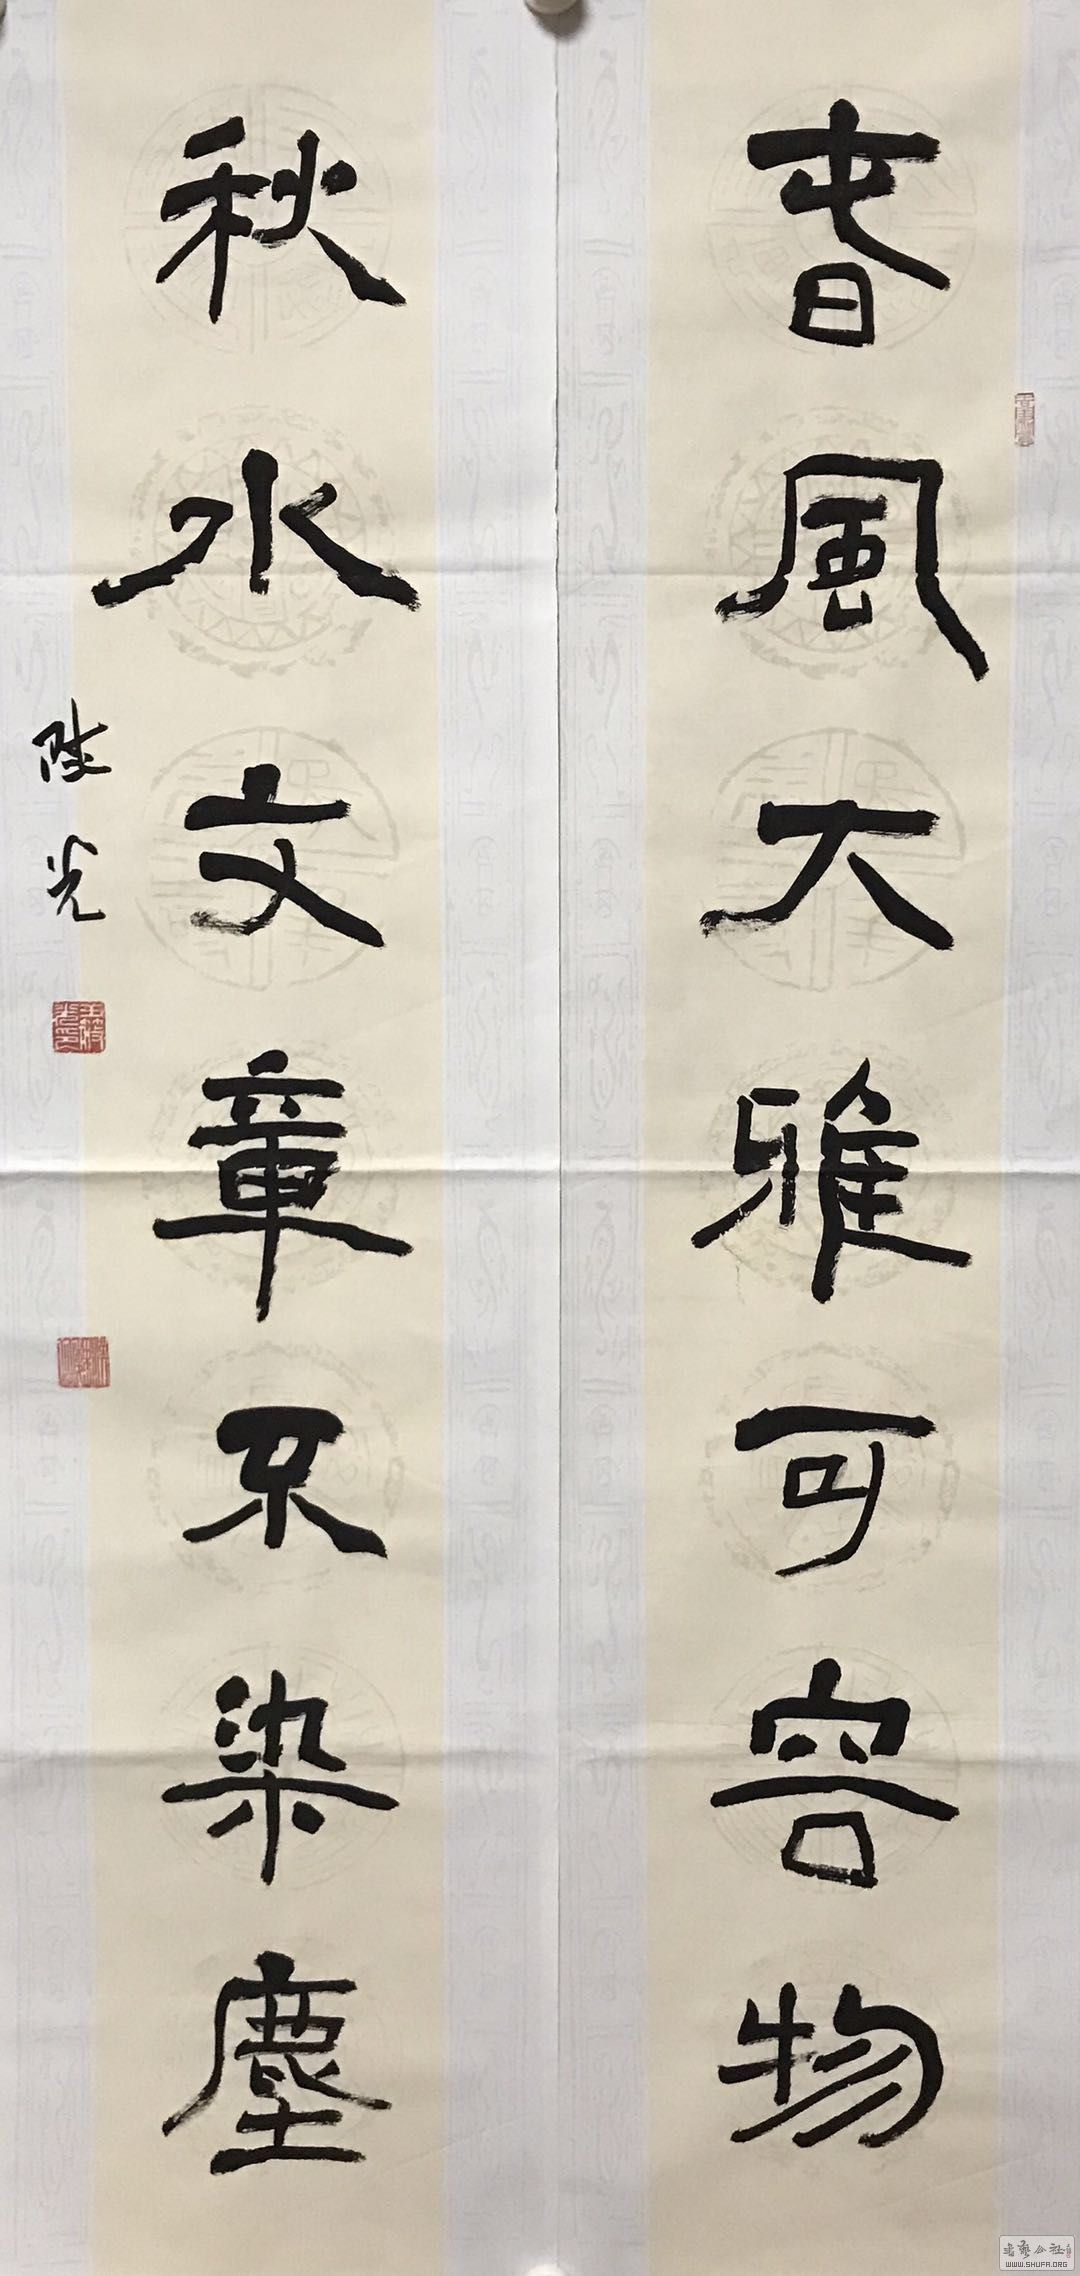 春風大雅可容物
秋水文章不染塵
陵光
書藝公社
WWW.SHUFA.ORG